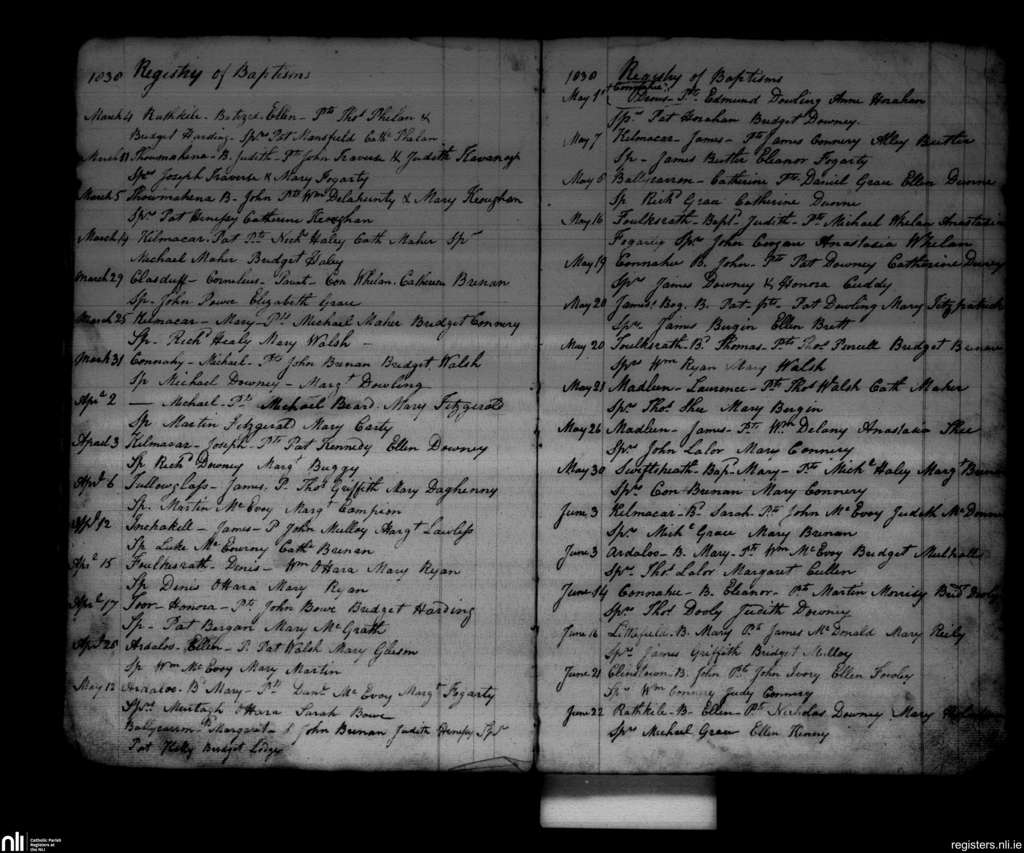 1830 Registry of Baptisms
March 4 Rathkile. Batizd. Ellen - Pts Thos Phelan &
Budget Harding. Sprs Pat Mansfield Cath Phelan
March 11 Thowmahena - B. Judith - Pts John Traverse & Judith Kavanagh
Sprs Joseph Traverse & Mary Fogarty
March 5 Thowmahena B. John Pts Wm Delahunty & Mary Keoughan
Sprs Pat Henepey Catherine Keoghan
March 14 Kilmacar. Pat Pts Nichs Haley Cath Maher Sprs
Michael Maher Budget Haley
March 29 Glasduff - Cornelius - Parnts - Con Whelan. Catherine Brenan
Sp. John Power Elizabeth Grace
March 25 Kilmacar - Mary - Pts Michael Maher Bridget Connery
Sp - Richd Healy Mary Walsh -
March 31 Connahy - Michael - Pts John Brenan Budget Walsh
Sp Michael Downey - Margt Dowling
Aprl 2 — Michael - Pts Michael Beard. Mary Fitzgerald
Sp Martin Fitzgerald Mary Carty
April 3 Kilmacar - Joseph - Pts Pat Kennedy Ellen Downey
Sp Richd Downey Margt Buggy
Aprl 6 Tullowglass - James. P. Thos Griffith Mary Daghenny
Sp. Martin McEvoy Margt Campion
Aprl 12 Inchakill - James - P John Mulloy Margt Lawless
Sp Luke McEvurny Cath Brenan
Aprl 15 Foulksrath - Denis - Wm OHara Mary Ryan
Sp Denis OHara Mary Ryan
Aprl 17 Toor - Honora - Pts John Bowe Budget Harding
Sp - Pat Bergan Mary McGrath
Aprl 25 Ardaloo - Ellen - P. Pat Walsh Mary Gleeson
Sp Wm McEvoy Mary Martin
May 12 Ardaloo. B. Mary - Pts Danl McEvoy Margt Fogarty
Sprs Murtagh OHara Sarah Bowe
Ballycarron - Margaret - John Brenan Judith Henepy Sprs
Pat Kelly Budget Lodge
1830 Registry of Baptisms
May 1st Connahie Denis - Pts Edmund Dowling Anne Horahan
Sprs Pat Horahan Budget Downey.
May 7 Kilmacar - James - Pts James Connery Alley Butler
Sp - James Butler Eleanor Fogarty
May 8 Ballycarron - Catherine Pts Daniel Grace Ellen Dunne
Sp Richd Grace Catherine Dunne
May 16 Foulksrath - Bapt. Judith - Pts Michael Whelan Anastasia
Fogarty Sprs John Coogan Anastasia Whelan
May 19 Connahie B. John - Pts Pat Downey Catherine Downey
Sprs James Downey & Honora Cuddy
May 20 James' Bog. B. Pat - pts - Pat Dowling Mary Fitzpatrick
Sprs James Bergin Ellen Brett
May 20 Foulksrath - B. Thomas - Pts Thos Purcell Budget Brenan
Sprs Wm Ryan Mary Walsh
May 21 Madlen - Laurence - Pts Thos Walsh Cath Maher
Sprs Thos Shee Mary Bergin
May 26 Madlen - James - Pts Wm Delany Anastasia Shee
Sprs John Lalor Mary Connery
May 30 Swiftsheath - Bap. Mary - Pts Michl Haly Margt Brenan
Sprs Con Brenan Mary Connery
June 3 Kilmacar - B. Sarah. Pts John McEvoy Judith
Sprs Michl Grace Mary Brenan
June 3 Ardaloo - B. Mary - Pts Wm McEvoy Budget Mulhall
Sprs Thos Lalor Margaret Cullen
June 14 Connahie - B. Eleanor - Pts Martin Morrisy Bridt Dooly
Sprs Thos Dooly Judith Downey
June 16 Littlefield - B. Mary Pts James McDonald Mary Reily
Sprs James Griffith Bridget Milloy
June 21 Clinstown - B. John Pts John Ivory Ellen Fooley
Sprs Wm Connery Judy Connery
June 22 Rathkile - B - Ellen - Pts Nicholas Downey Mary
Sprs Michael Grace Ellen Kenny
nli Catholic Parish
Registers at
the NLI
registers.nli.ie